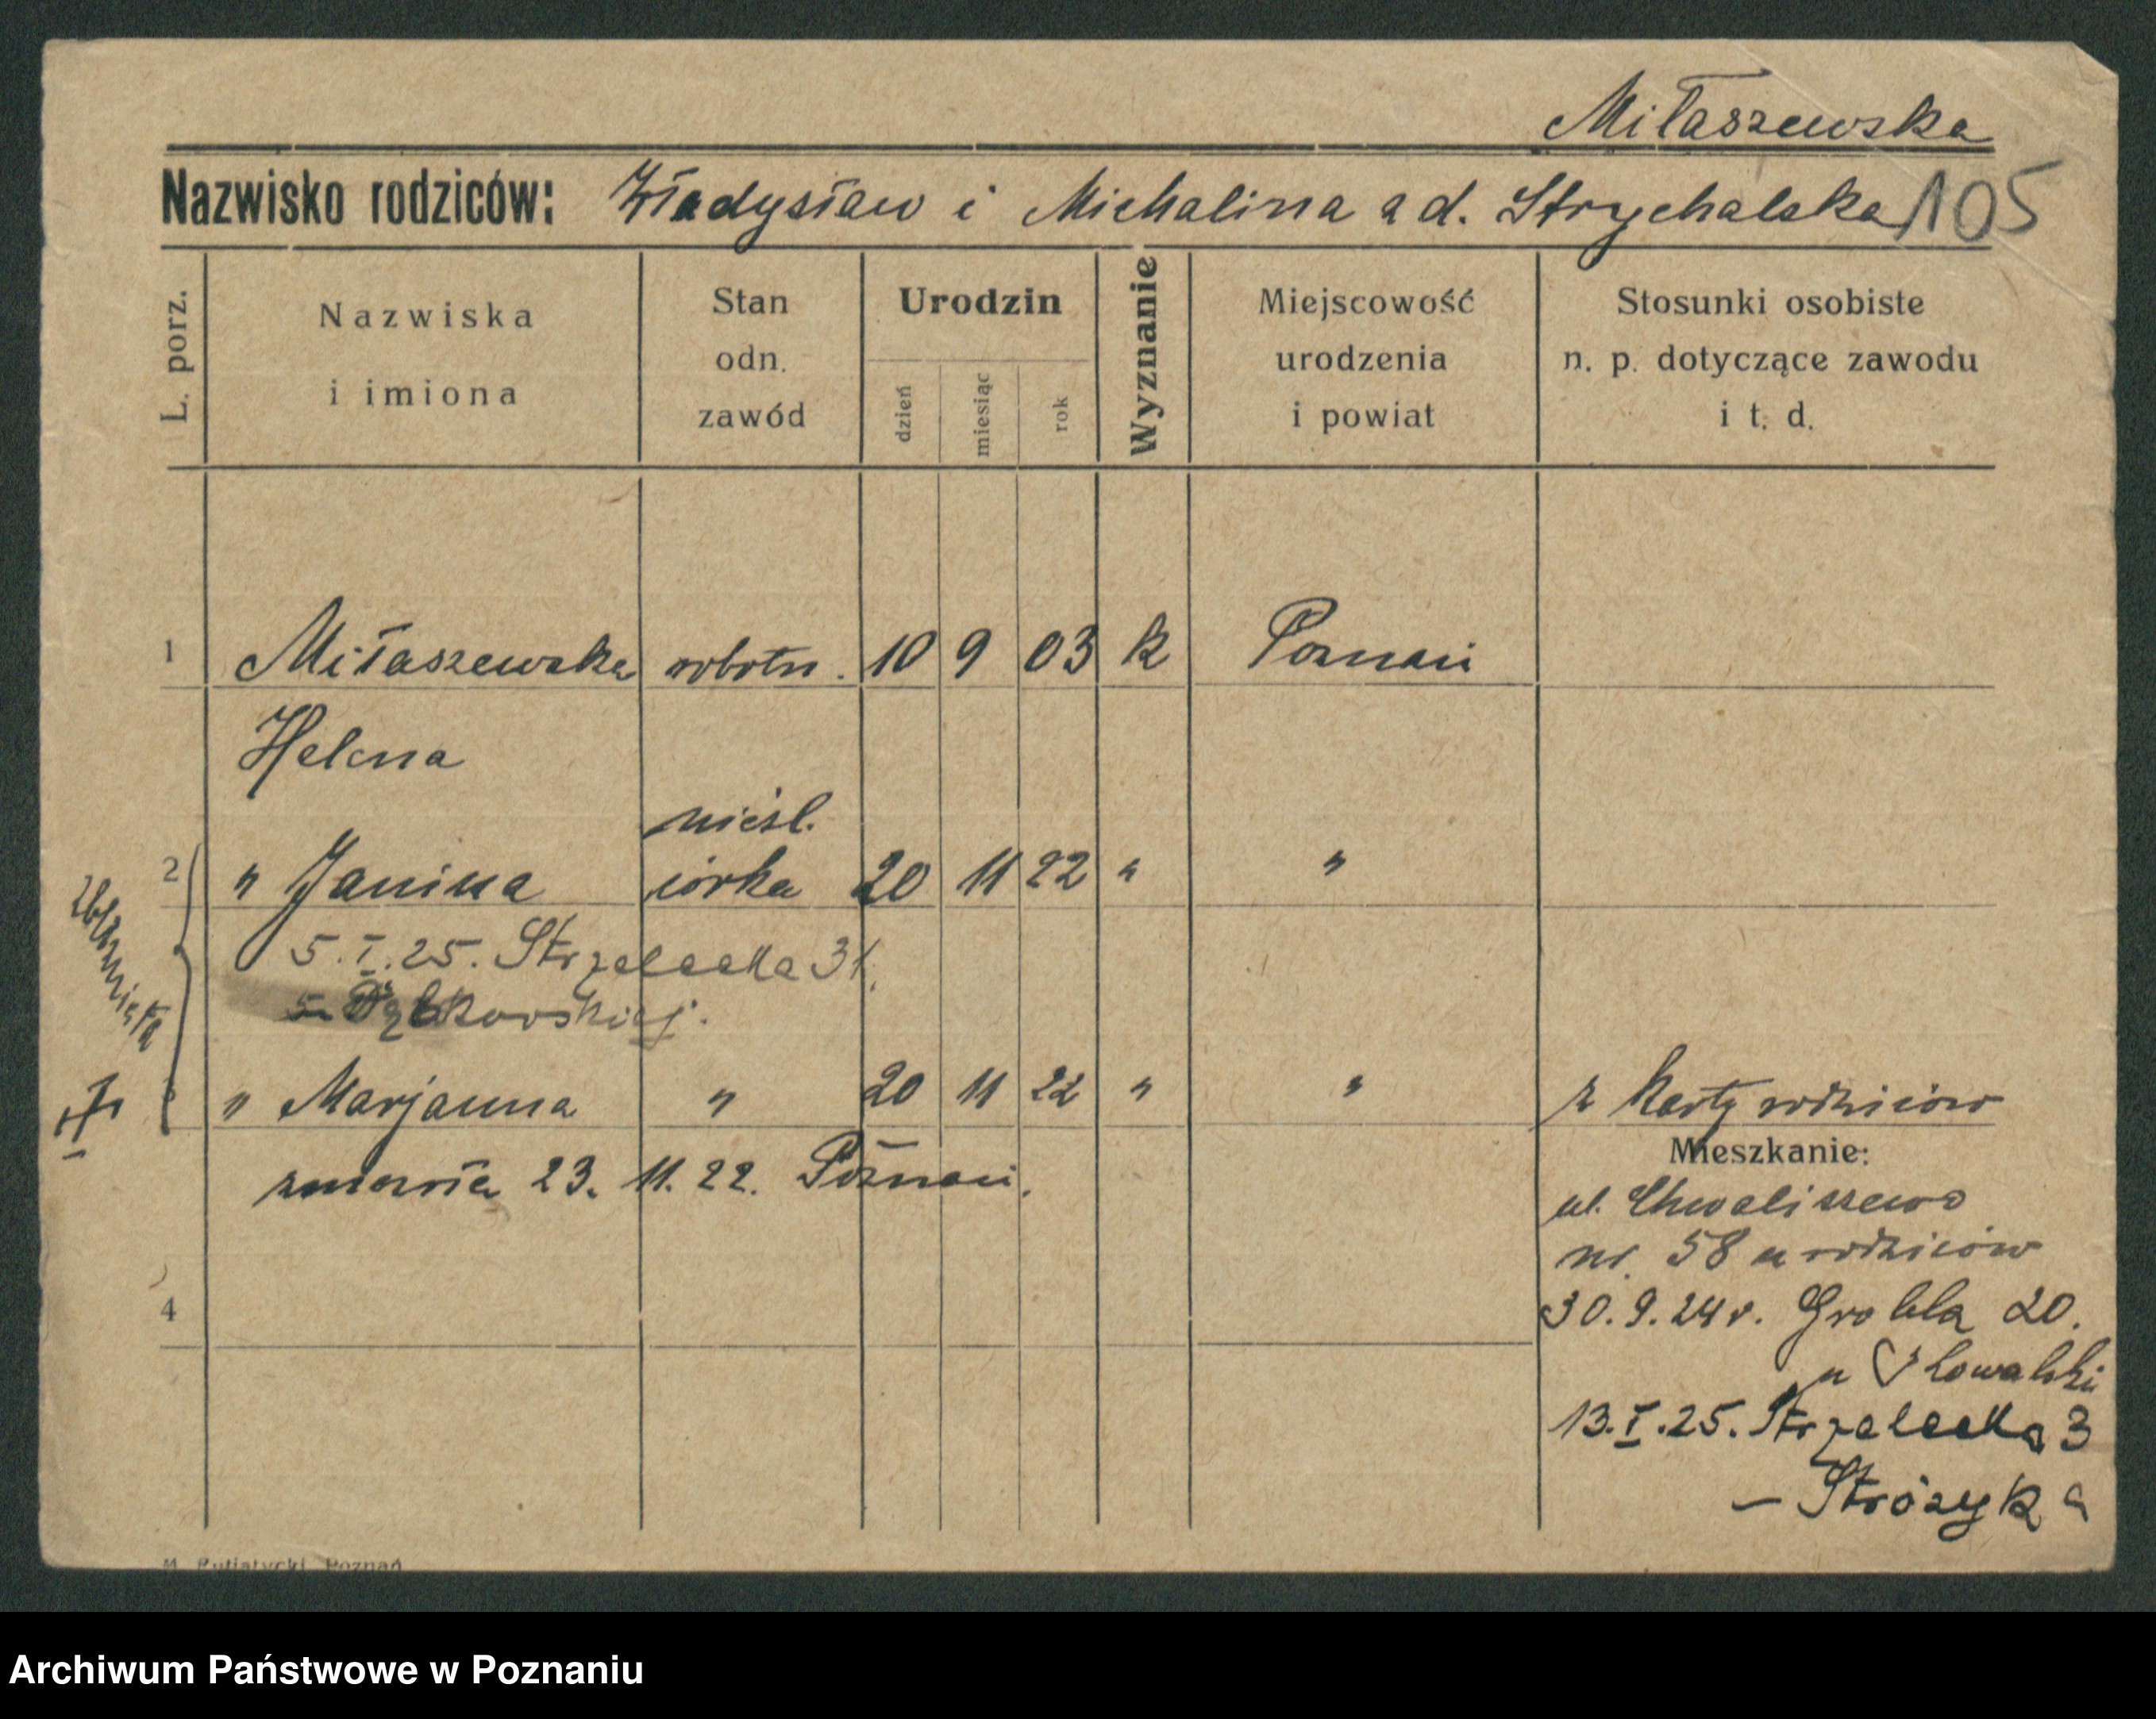 Miłaszewska
Nazwisko rodziców: Władysław i Michalina z d. Strychalska 105
L. porz.
Nazwiska
i imiona
Stan
odn.
zawód
Urodzin
dzień
miesiąc
rok
Wyznanie
Miejscowość
urodzenia
i powiat
Stosunki osobiste
n. p. dotyczące zawodu
i t. d.
1 Miłaszewska robotn. 10 9 03 k Poznań
Helena
nieśl.
2 " Janina córka 20 11 22 " "
5.I.25. Strzelecka 31.
Dąbkowskiej.
bliźnięta
" Marjanna " 20 11 22 " " z karty rodziców
Mieszkanie:
zmarła 23. 11. 22. Poznań.
ul. Chwaliszewo
nr. 58 u rodziców
4
30.9.24 r. Grobla 20.
u Kowalski
13.I.25. Strzelecka 3
– Stróżyka
M. Putiatycki, Poznań
Archiwum Państwowe w Poznaniu